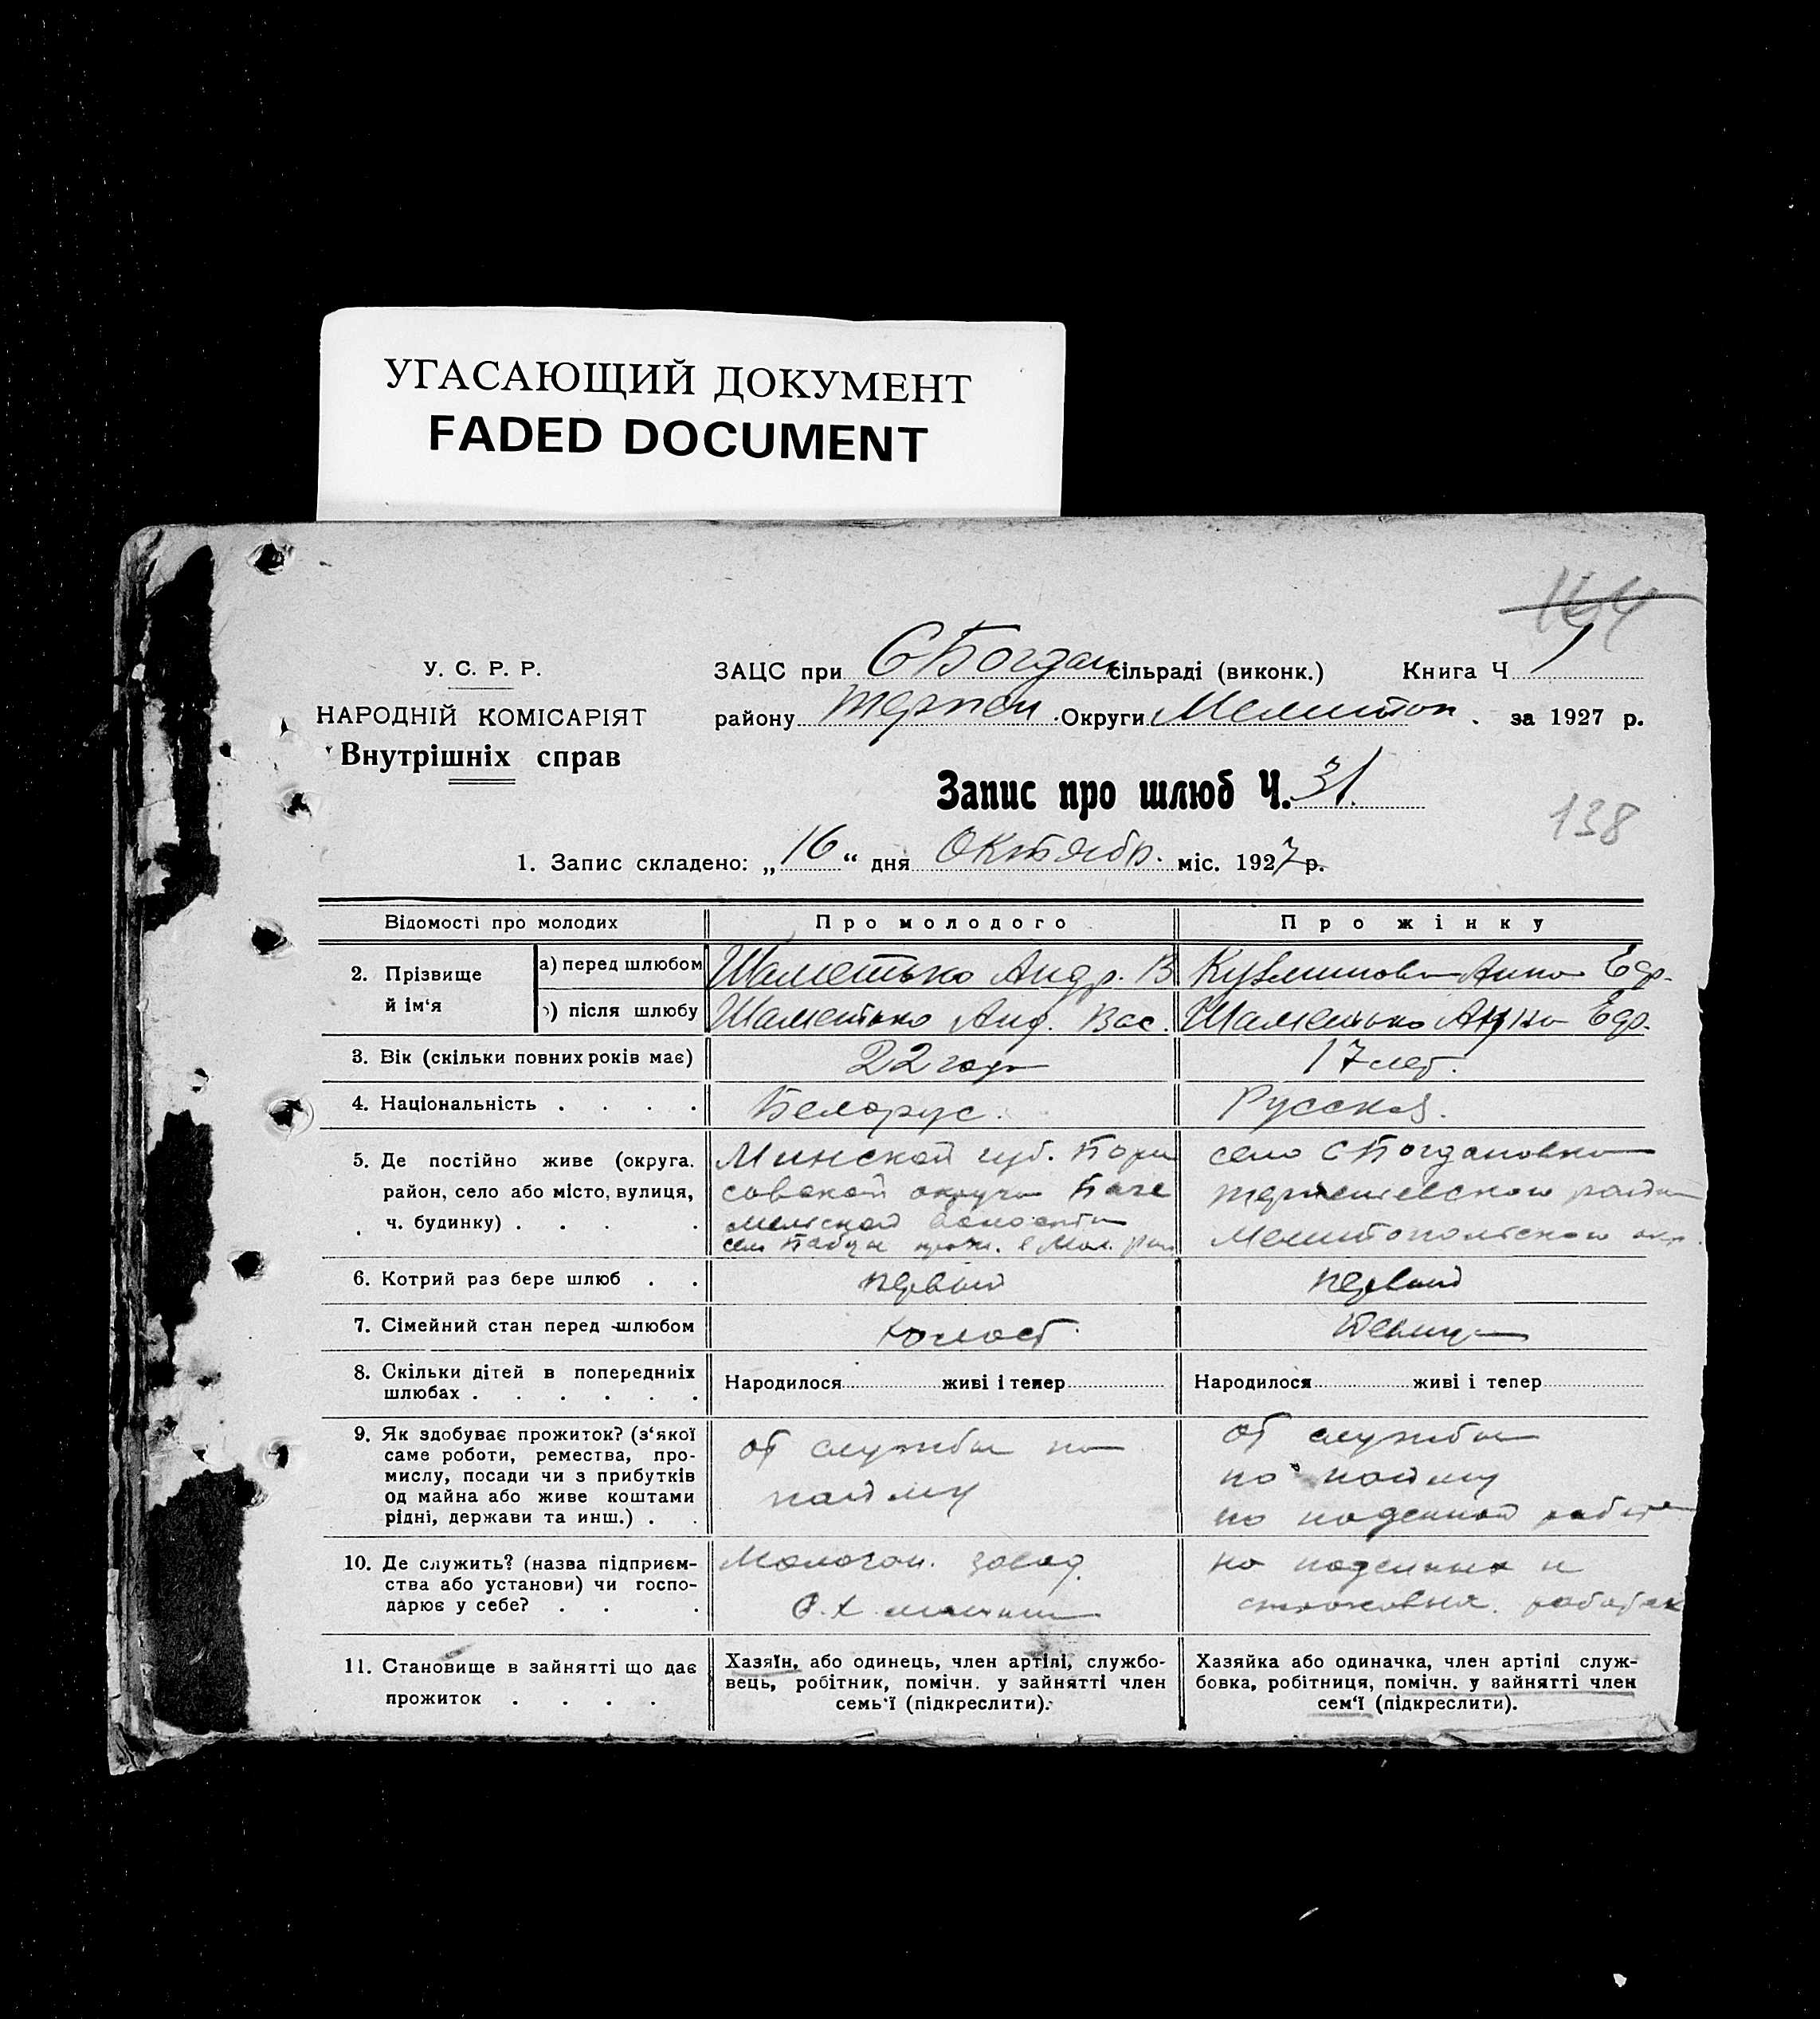 УГАСАЮЩИЙ ДОКУМЕНТ
FADED DOCUMENT
164
У. С. Р. Р.
НАРОДНІЙ КОМІСАРІЯТ
Внутрішніх справ
ЗАЦС при С Богдан сільраді (виконк.) Книга Ч 1
району Терпен Округи Мелитоп . за 1927 р.
Запис про шлюб Ч. 31.
138
1. Запис складено: „ 16 “ дня Октябр. міс. 1927 р.
Відомості про молодих
Про молодого
Про жінку
2. Прізвище
й ім‘я
а) перед шлюбом
Шаметько Андр. В
Кузьминова Анна Ефр.
) після шлюбу
Шаметько Анд. Вас.
Шаметько Анна Ефр.
3. Вік (скільки повних років має)
22 года
17 лет.
4. Національність . . . .
Белорус.
Русская.
5. Де постійно живе (округа.
район, село або місто, вулиця,
ч. будинку) . . . .
Минской губ. Бори
совской округи
волости
село С Богдановка
Терпеньевского района
Мелитопольского окр.
6. Котрий раз бере шлюб . .
первый
первый
7. Сімейний стан перед шлюбом
холост
девица
8. Скільки дітей в попередниіх
шлюбах . . . . . .
Народилося живі і тепер
Народилося живі і тепер
9. Як здобуває прожиток? (з‘якої
саме роботи, ремества, про-
мислу, посади чи з прибутків
од майна або живе коштами
рідні, держави та инш.) . .
от службы по
найму
от службы
по найму
по поденной работе
10. Де служить? (назва підприєм-
ства або установи) чи госпо-
дарює у себе? . . .
Молочан. завод.
С.Х. машин
на поденных и
работах
11. Становище в зайнятті що дає
прожиток . . . .
Хазяїн, або одинець, член артілі, службо-
вець, робітник, помічн. у зайнятті член
семь‘ї (підкреслити).
Хазяйка або одиначка, член артілі служ-
бовка, робітниця, помічн. у зайнятті член
сем‘ї (підкреслити).